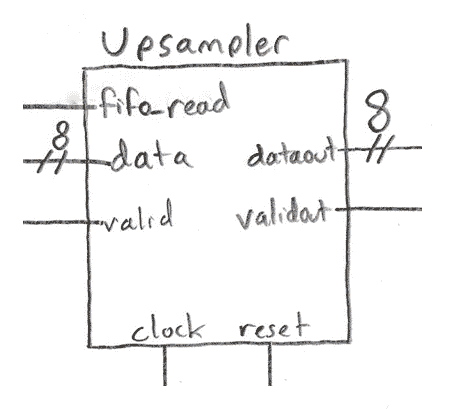 Upsampler
fifo_read
8
data
8
dataout
valid
validout
clock reset